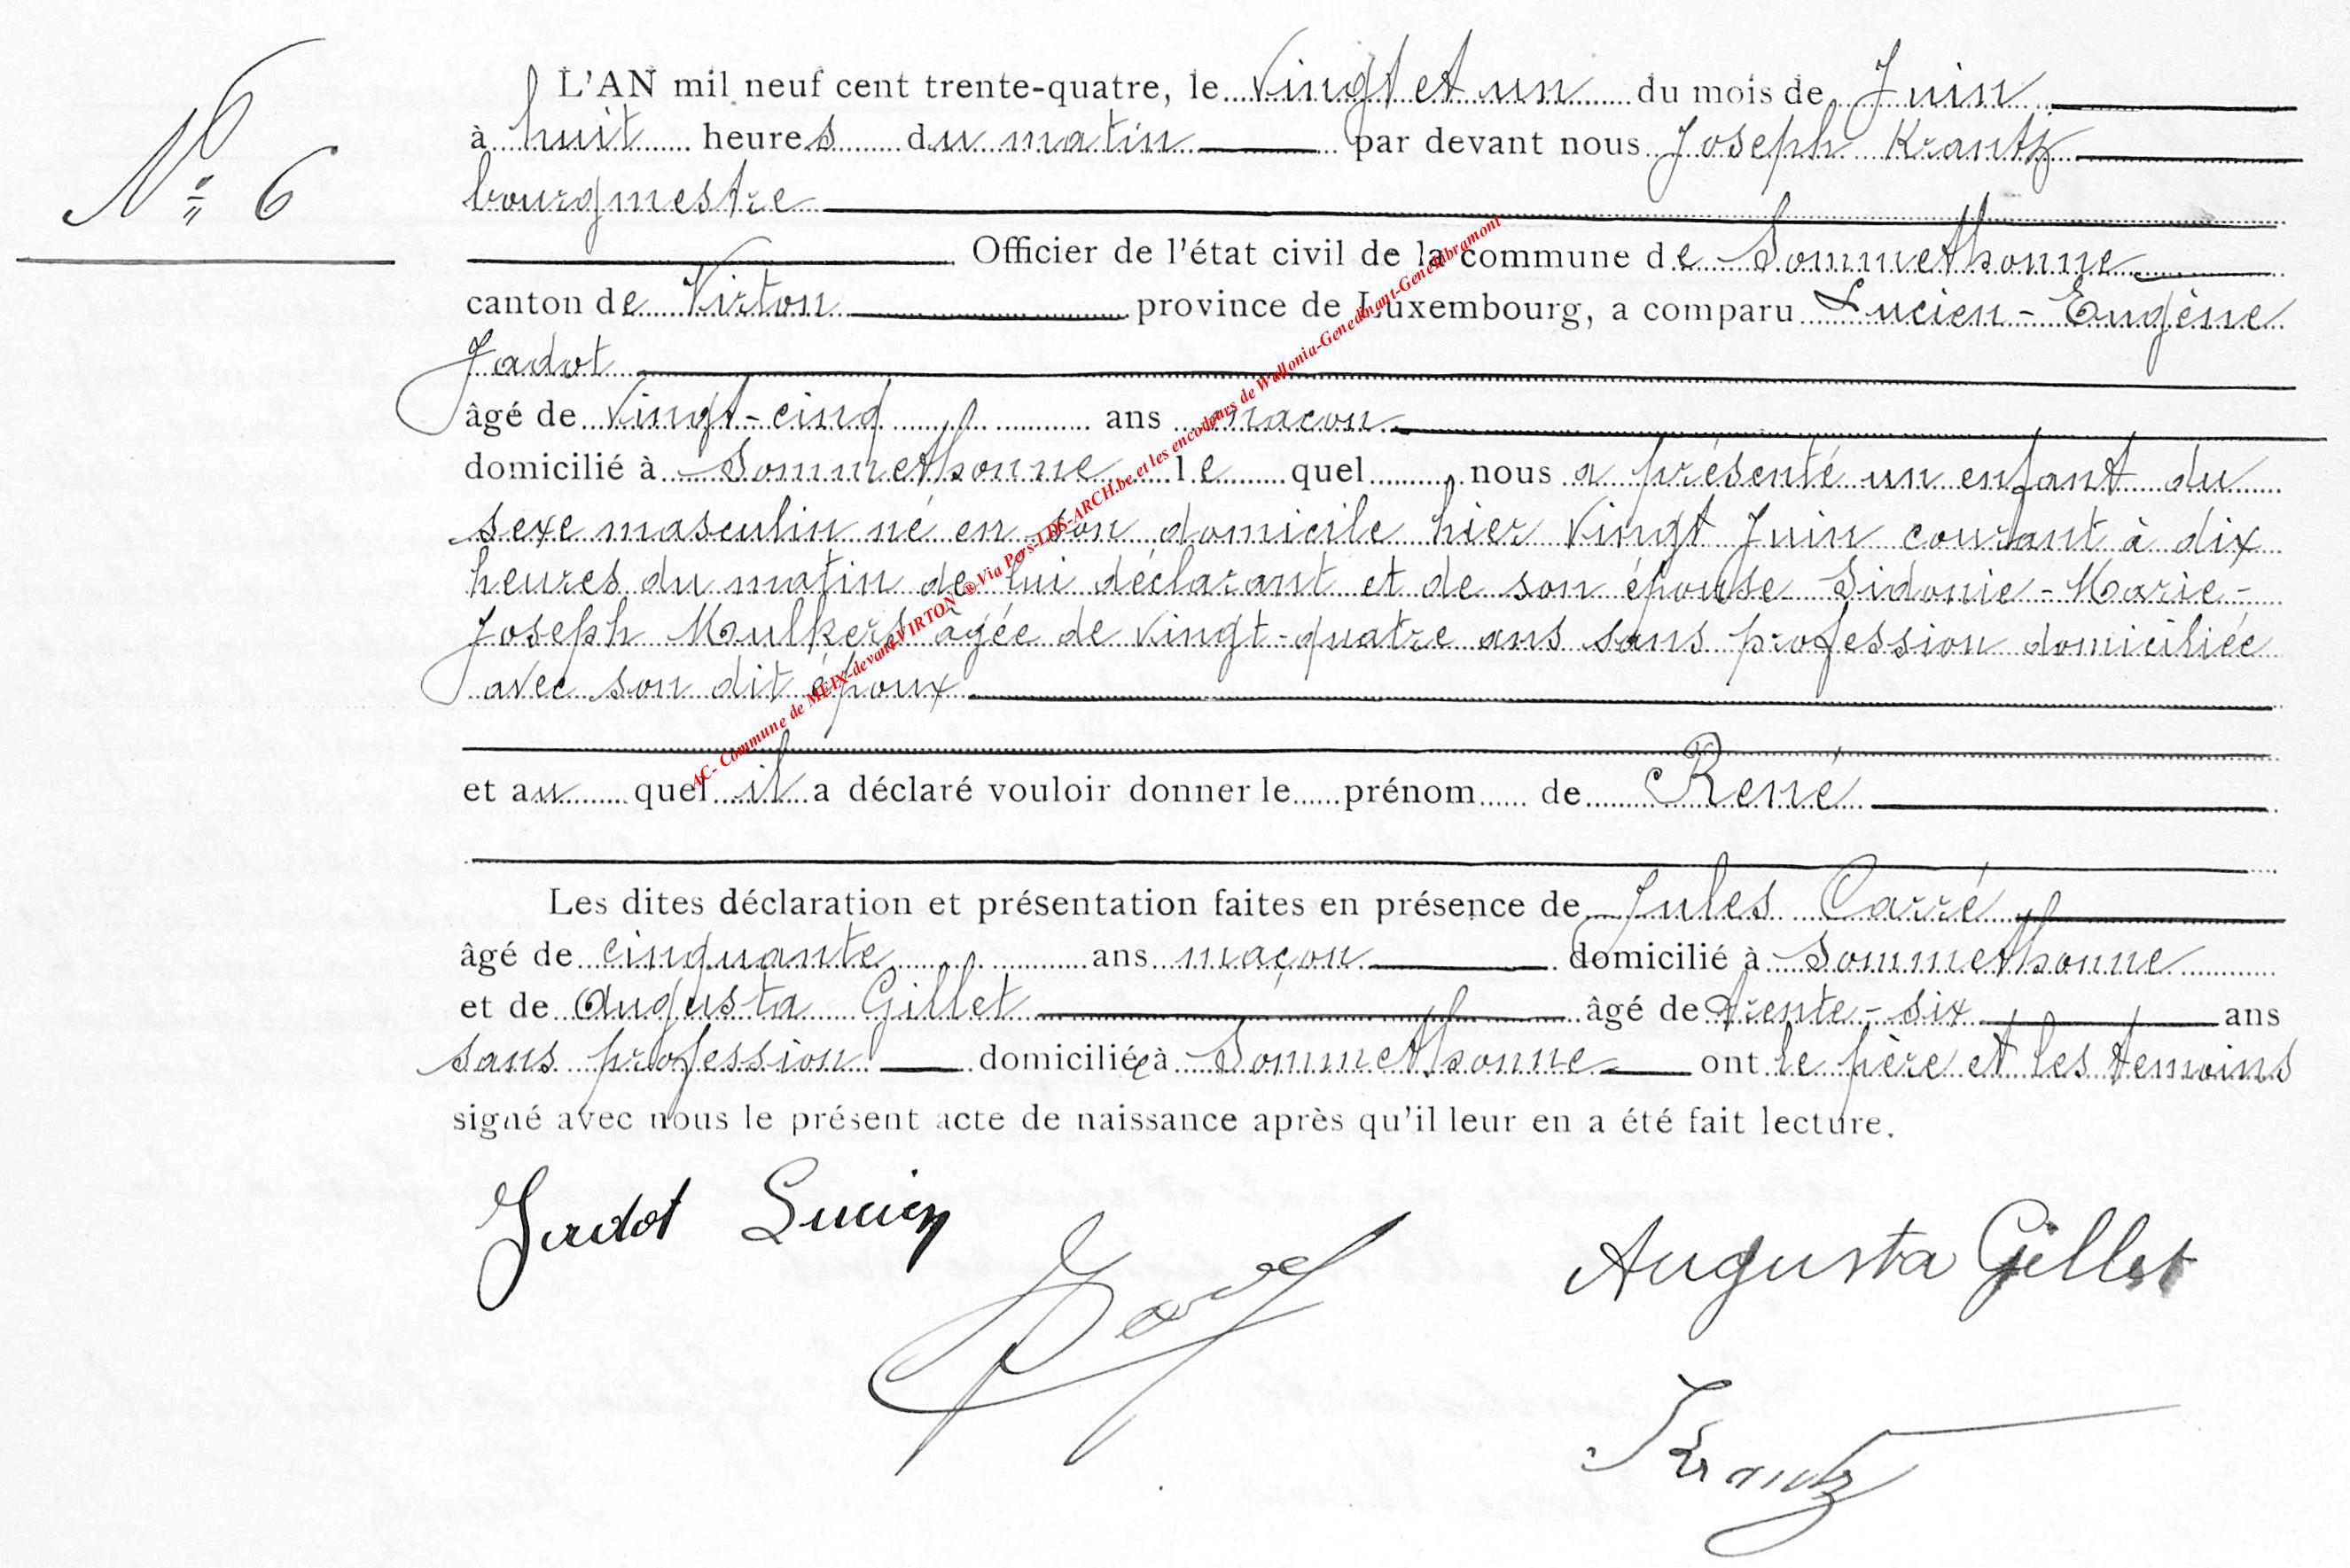 N° 6
L'AN mil neuf cent trente-quatre, le vingt et un du mois de Juin
à huit heures du matin par devant nous Joseph Krantz
bourgmestre
Officier de l'état civil de la commune de Sommethonne
canton de Virton province de Luxembourg, a comparu Lucien-Eugène
Jadot
âgé de vingt-cinq ans maçon
domicilié à Sommethonne le quel nous a présenté un enfant du
sexe masculin né en son domicile hier vingt Juin courant à dix
heures du matin de lui déclarant et de son épouse Sidonie-Marie-
Joseph Mulkers âgée de vingt-quatre ans sans profession domiciliée
avec son dit époux
et au quel il a déclaré vouloir donner le prénom de René
Les dites déclaration et présentation faites en présence de Jules Carré
âgé de cinquante ans maçon domicilié à Sommethonne
et de Augusta Gillet âgé de trente-six ans
sans profession domiciliée à Sommethonne ont le père et les temoins
signé avec nous le présent acte de naissance après qu'il leur en a été fait lecture.
Jadot Lucien
Augusta Gillet
Krantz
AC- Commune de MEIX-devant-VIRTON ® Via Pers-LDS-ARCH.be et les encodeurs de Wallonia-Genedinant-Genelibramont